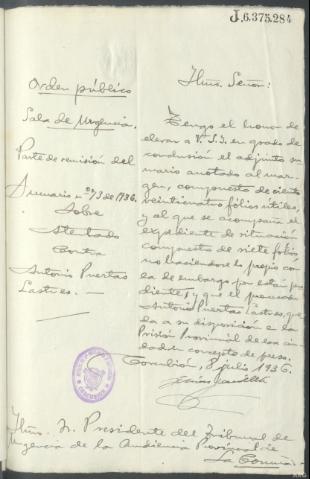 J.6.375.284
Orden público
Sala de Urgencia.
Parte de remisión del
Sumario nº 273 de 1936.
Sobre
Atentado
Contra
Antonio Puertas
Lastres.—
Ilmo. Señor:
Tengo el honor de
elevar a V.S.I. en grado de
conclusión el adjunto su
mario anotado al mar-
gen, compuesto de ciento
veinticuatro fólios útiles,
y al que se acompaña el
expediente de situación
compuesto de siete folios,
no haciéndose lo propio con
la de embargo por estar pen
diente, y que el procesado
Antonio Puertas Lastres, que
da a su disposición e la
Prisión Provincial de esa ciu
dad en concepto de preso.
8 julio 1936.
Ilmo. Sr. Presidente del Tribunal de
Urgencia de la Audiencia Provincial de
La Coruña